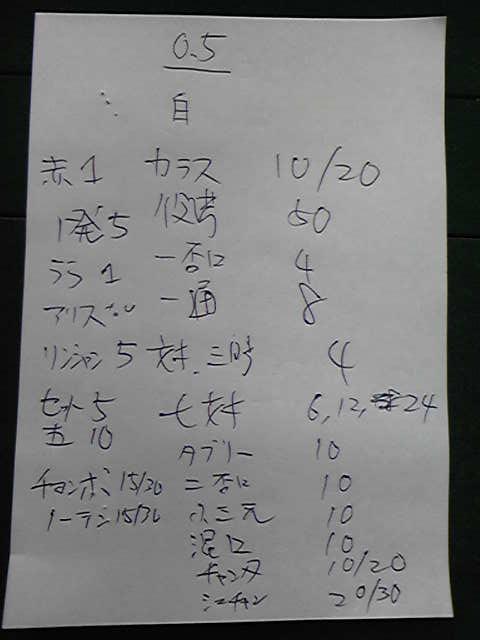 0.5
自
赤1 カラス 10/20
1発5 役満 50
ララ 1 一否口 4
アリス 一通 8
リンシャン 5 対々.三時 4
セット5 七対 6,12, 24
五 10 タブリー 10
チョンボ 15/30 二否口 10
ノーテン 15/30 小三元 10
混口 10
チャンタ 10/20
シュンチャン 20/30